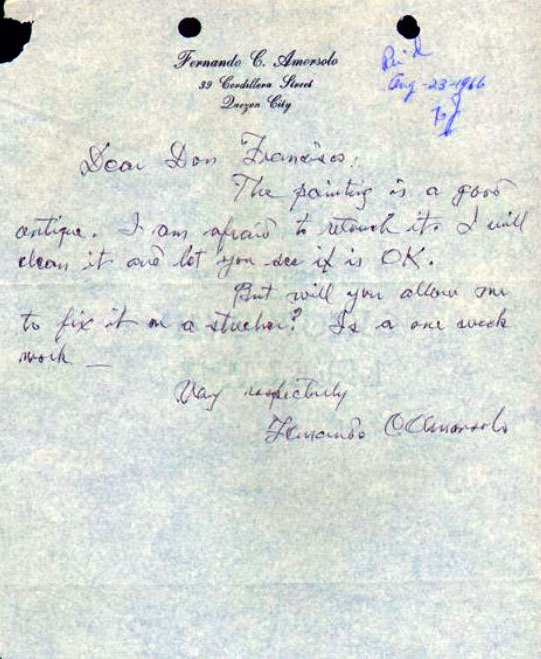 Fernando C. Amorsolo
39 Cordillera Street
Quezon City
Aug-23-1966
Dear Don Francisco:
The painting is a good
antique. I am afraid to retouch it. I will
clean it and let you see if is OK.
But will you allow me
to fix it on a strecher? Is a one week
work —
Very respectfully
Fernando C. Amorsolo